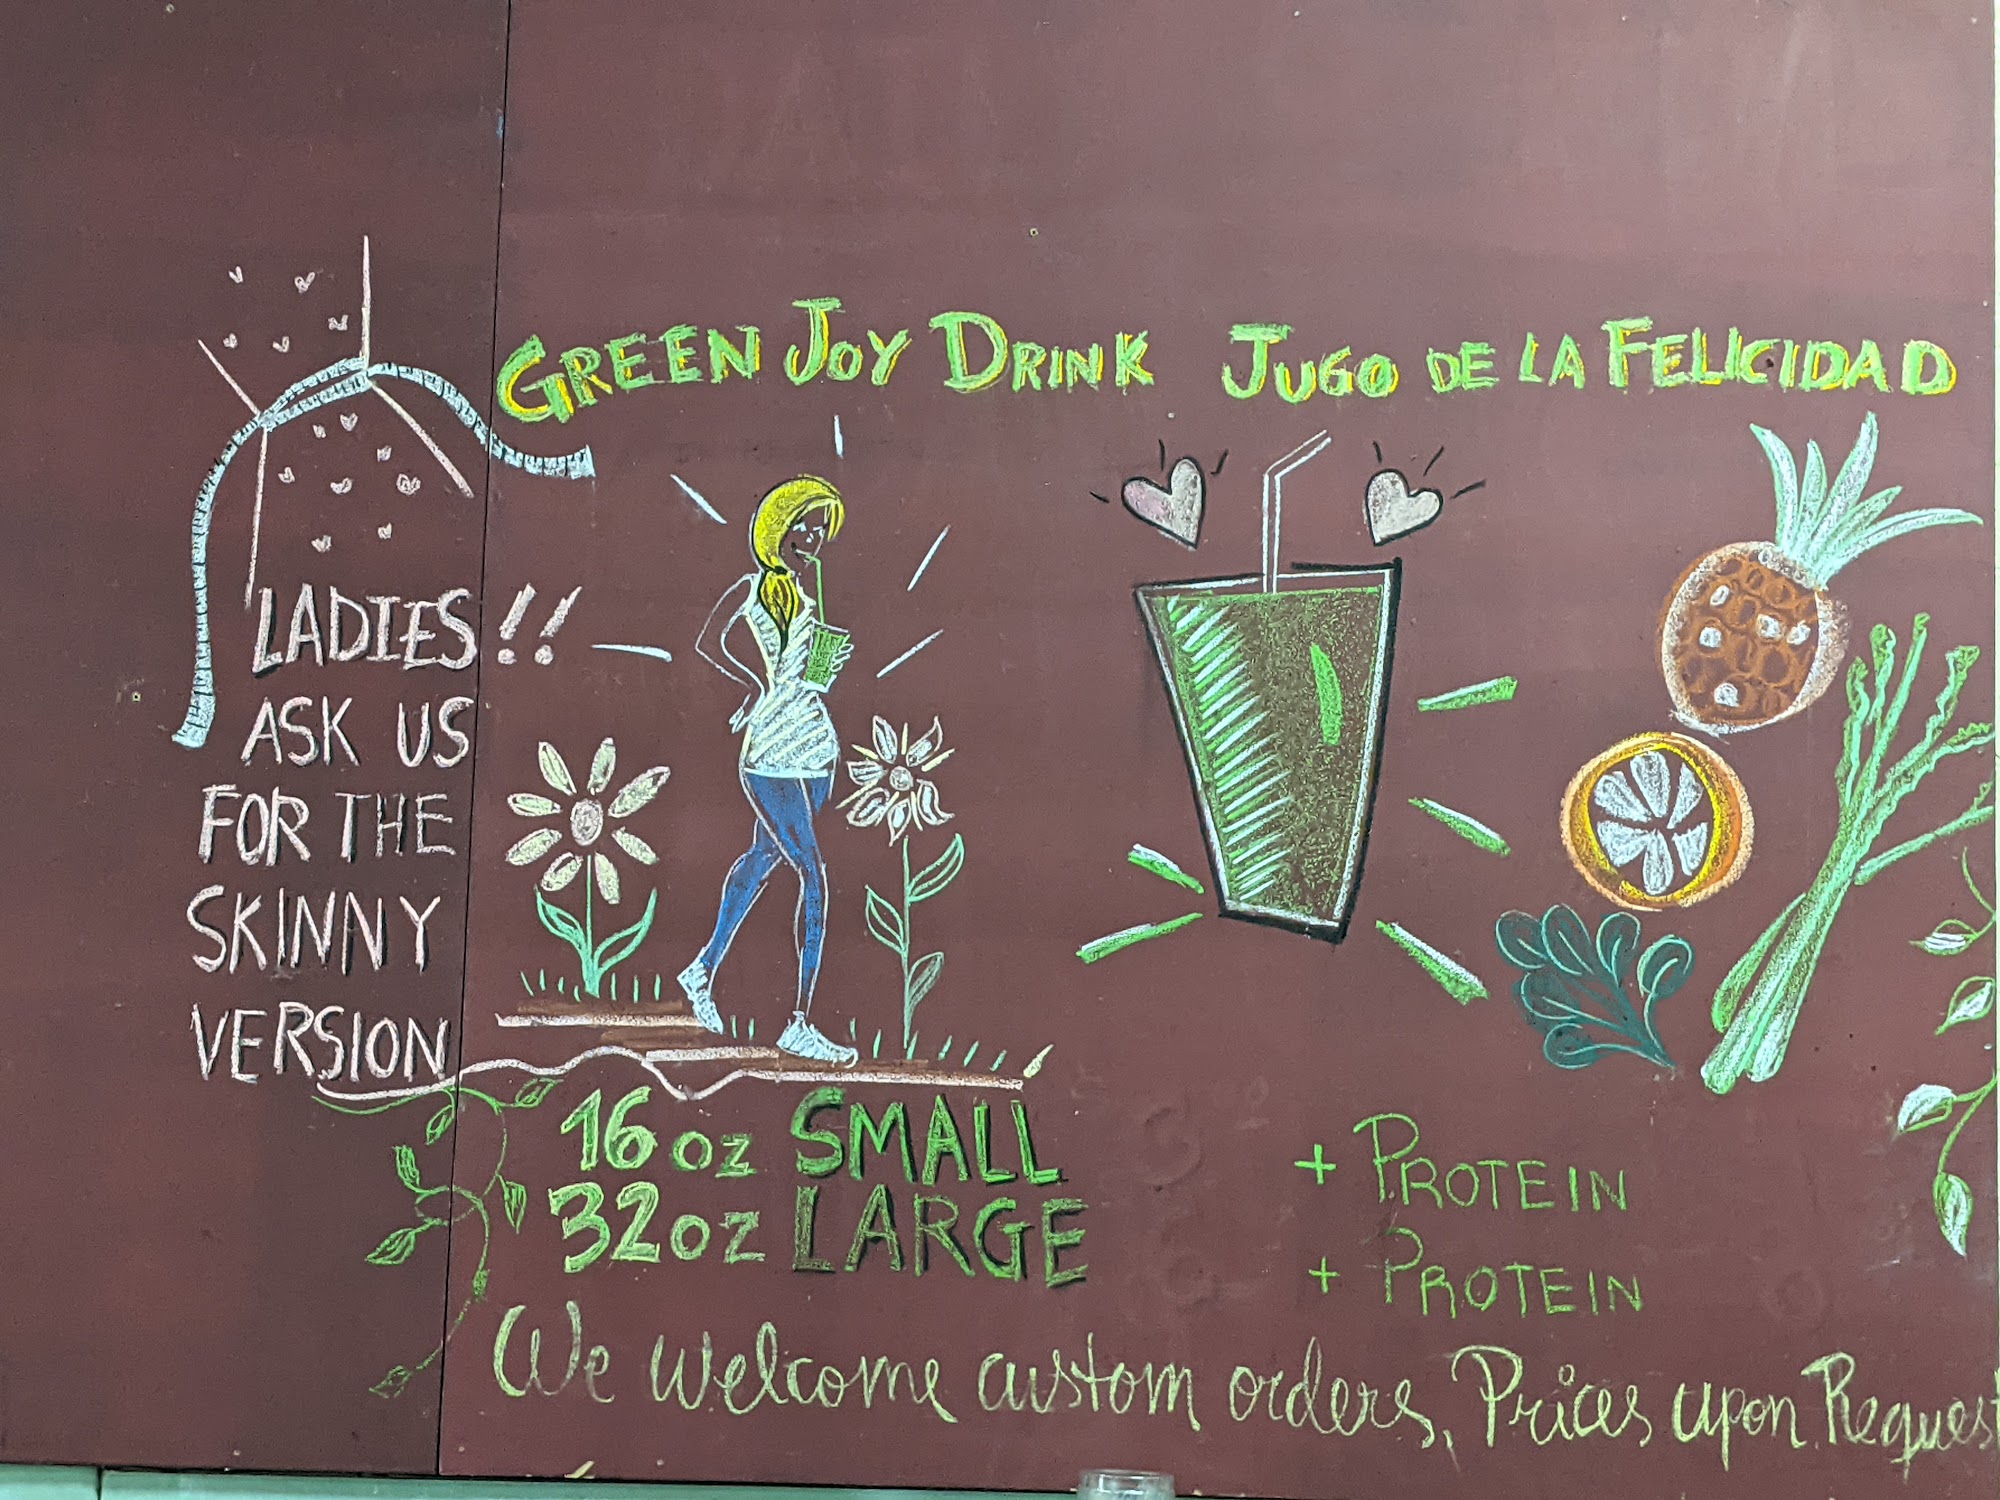 GREEN JOY DRINK JUGO DE LA FELICIDAD
LADIES!!
ASK US
FOR THE
SKINNY
VERSION
16 oz SMALL + PROTEIN
32 oz LARGE + PROTEIN
We welcome custom orders, Prices upon Request